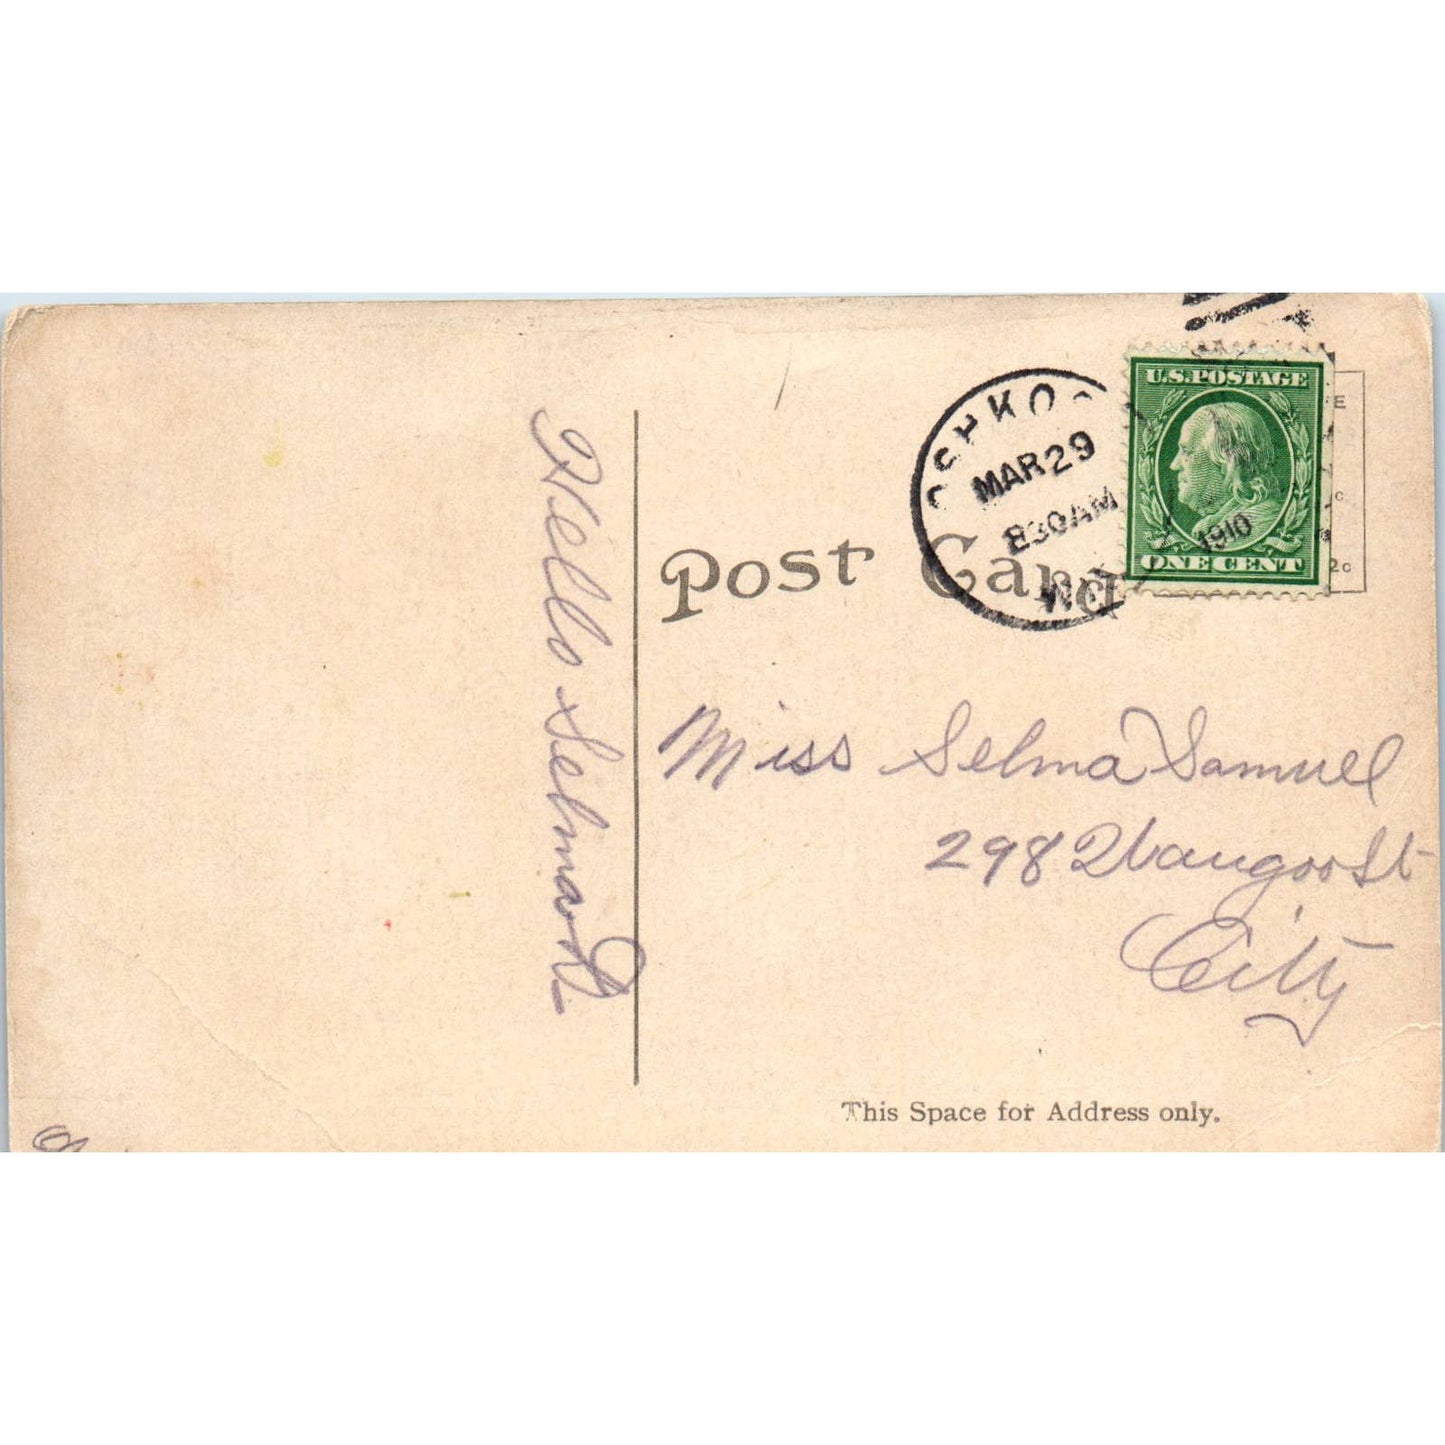 OSHKO
MAR 29
830AM
1910
WIS
U.S. POSTAGE
ONE CENT
2c
Post Card
Hello Selma
Miss Selma Samuel
298 Waugoo St
City
This Space for Address only.